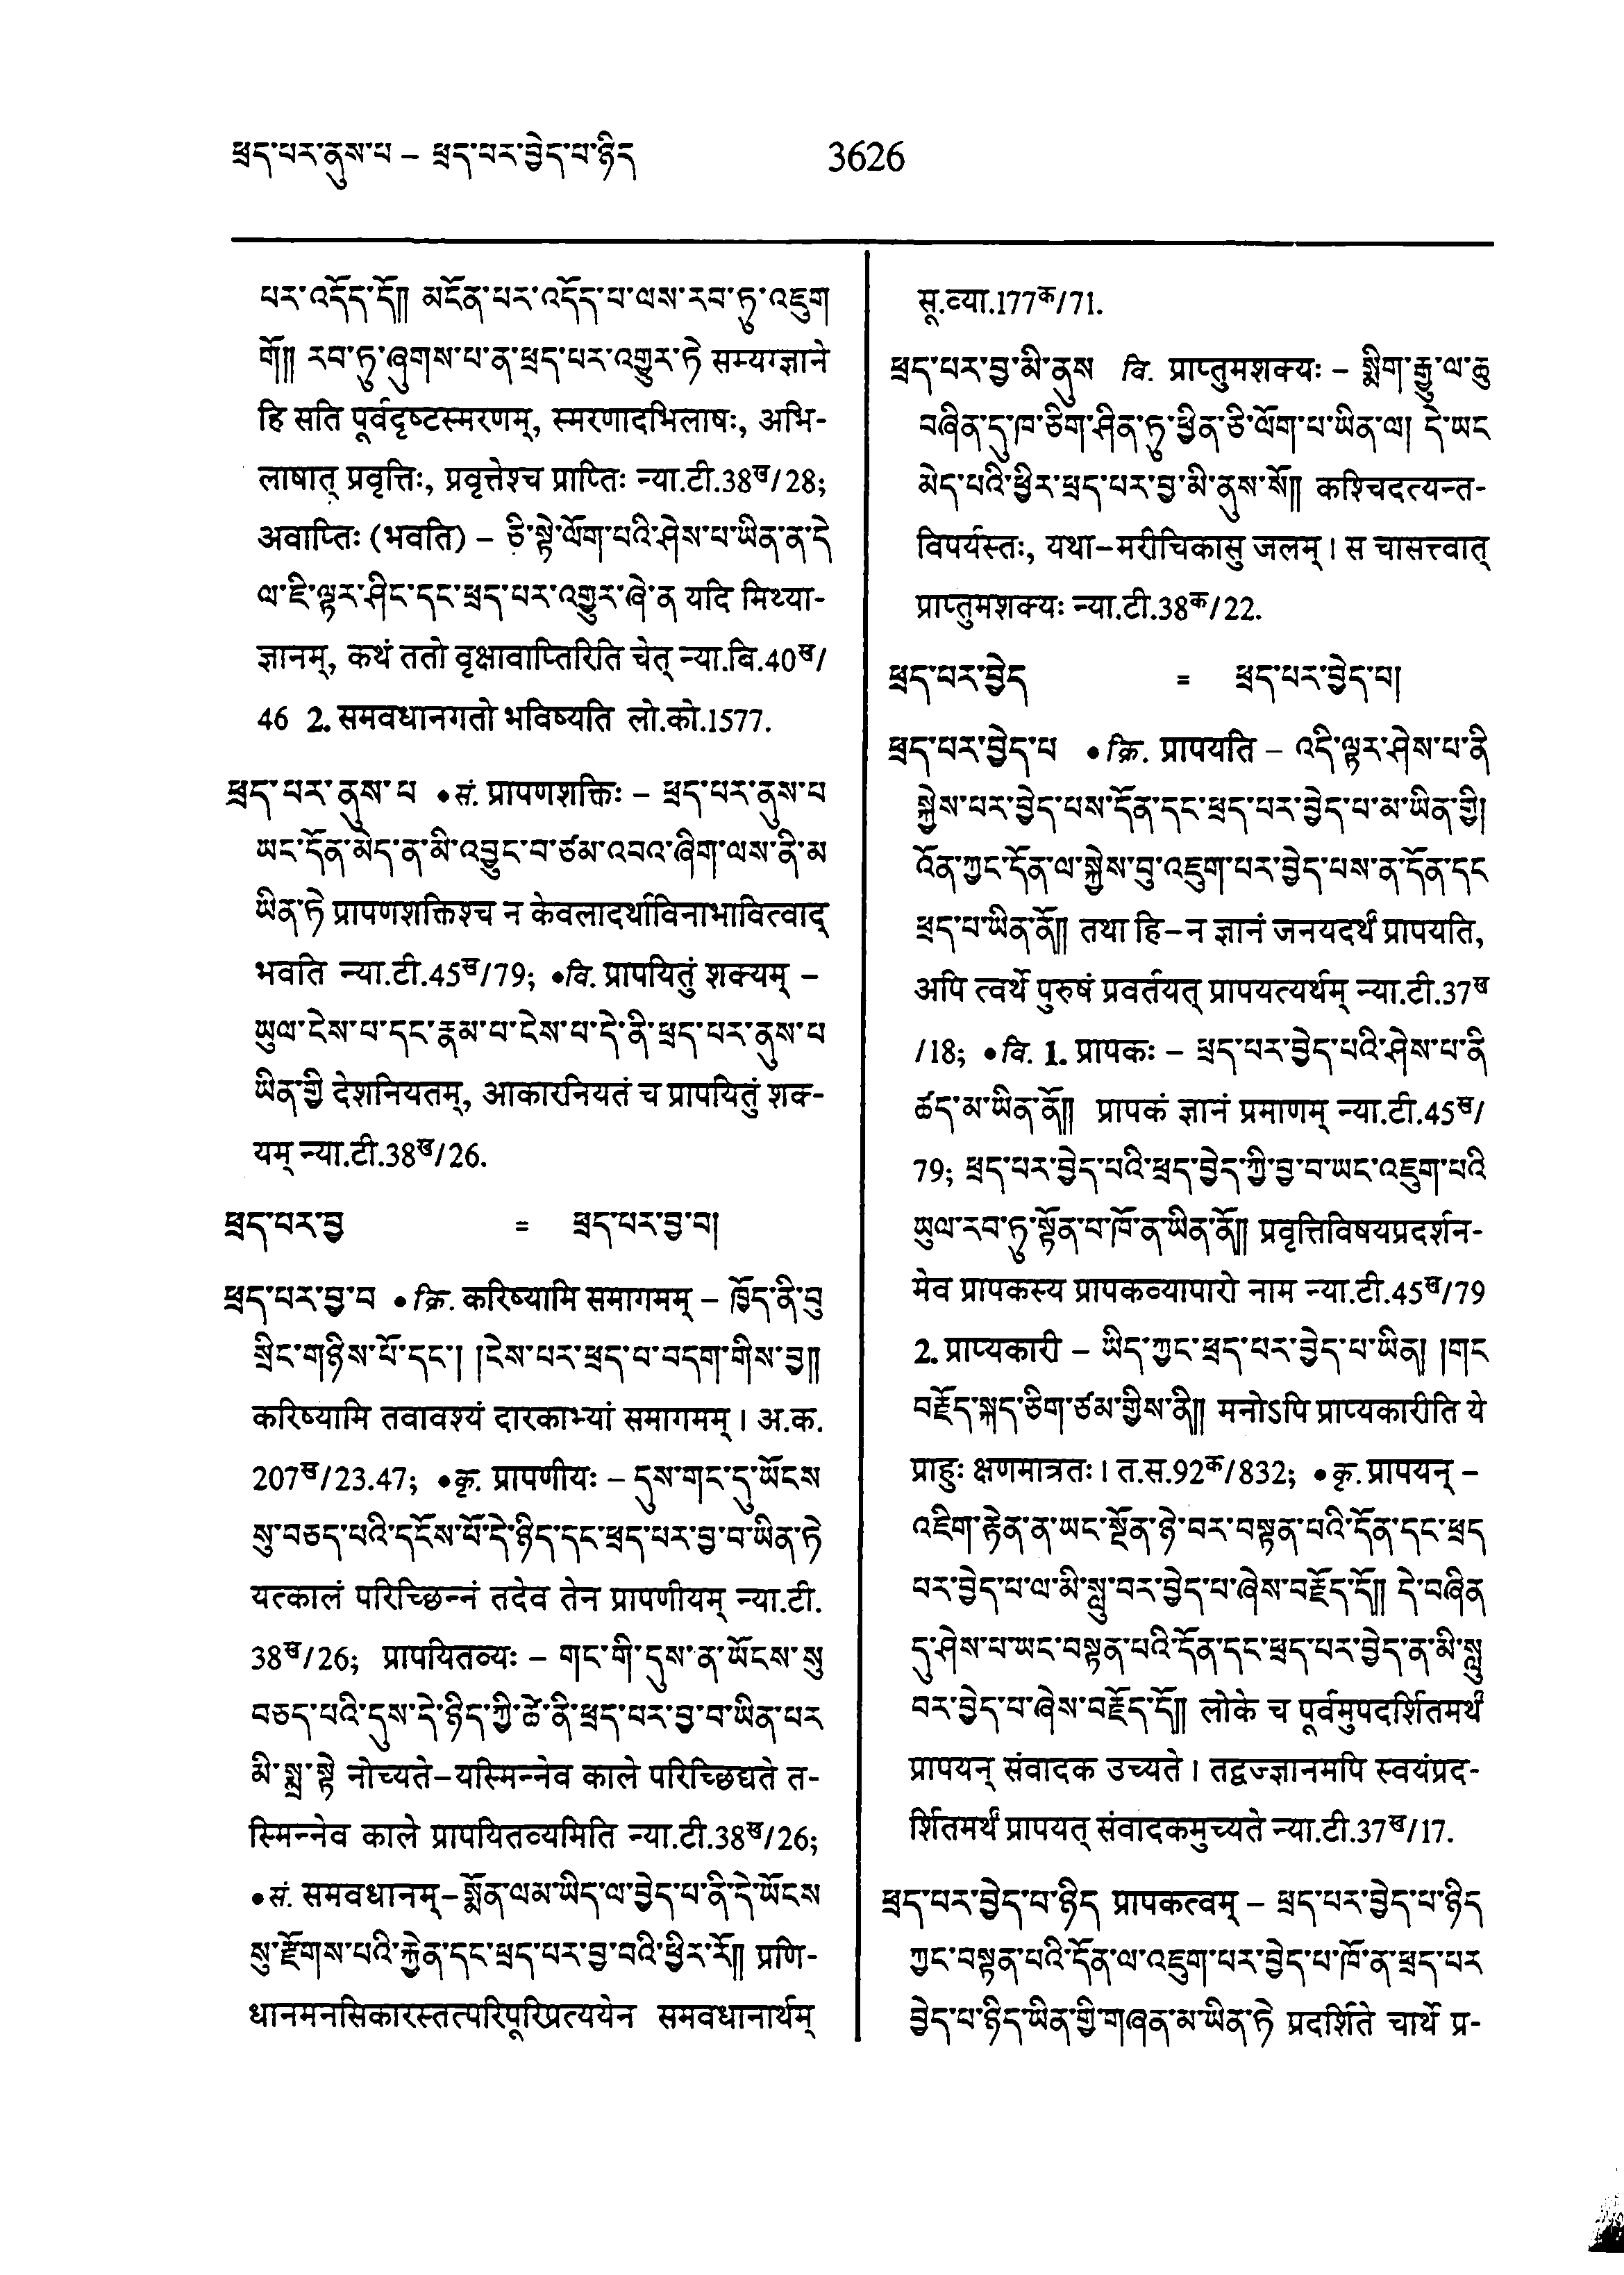 ཕྲད་པར་ནུས་པ – ཕྲད་པར་བྱེད་པ་ཉིད
3626
པར་འདོད་དོ།། མངོན་པར་འདོད་པ་ལས་རབ་ཏུ་འཇུག
གོ།། རབ་ཏུ་ཞུགས་པ་ན་ཕྲད་པར་འགྱུར་ཏེ सम्यग्ज्ञाने
हि सति पूर्वदृष्टस्मरणम्, स्मरणादभिलाषः, अभि-
लाषात् प्रवृत्तिः, प्रवृत्तेश्च प्राप्तिः न्या.टी.38ख/28;
अवाप्तिः (भवति) – ཅི་སྟེ་ལོག་པའི་ཤེས་པ་ཡིན་ན་དེ
ལ་ཇི་ལྟར་ཤིང་དང་ཕྲད་པར་འགྱུར་ཞེ་ན यदि मिथ्या-
ज्ञानम्, कथं ततो वृक्षावाप्तिरिति चेत् न्या.बि.40ख/
46 2. समवधानगतो भविष्यति लो.को.1577.
ཕྲད་པར་ནུས་པ •सं. प्रापणशक्तिः – ཕྲད་པར་ནུས་པ
ཡང་དོན་མེད་ན་མི་འབྱུང་བ་ཙམ་འབའ་ཞིག་ལས་ནི་མ
ཡིན་ཏེ प्रापणशक्तिश्च न केवलादर्थाविनाभावित्वाद्
भवति न्या.टी.45ख/79; •वि. प्रापयितुं शक्यम् –
ཡུལ་ངེས་པ་དང་རྣམ་པ་ངེས་པ་དེ་ནི་ཕྲད་པར་ནུས་པ
ཡིན་གྱི देशनियतम्, आकारनियतं च प्रापयितुं शक-
यम् न्या.टी.38ख/26.
ཕྲད་པར་བྱ = ཕྲད་པར་བྱ་བ།
ཕྲད་པར་བྱ་བ •क्रि. करिष्यामि समागमम् – ཁྱོད་ནི་བུ
སྲིང་གཉིས་པོ་དང་། །ངེས་པར་ཕྲད་པ་བདག་གིས་བྱ།།
करिष्यामि तवावश्यं दारकाभ्यां समागमम् । अ.क.
207ख/23.47; •कृ. प्रापणीयः – དུས་གང་དུ་ཡོངས
སུ་བཅད་པའི་དངོས་པོ་དེ་ཉིད་དང་ཕྲད་པར་བྱ་བ་ཡིན་ཏེ
यत्कालं परिच्छिन्नं तदेव तेन प्रापणीयम् न्या.टी.
38ख/26; प्रापयितव्यः – གང་གི་དུས་ན་ཡོངས་སུ
བཅད་པའི་དུས་དེ་ཉིད་ཀྱི་ཚེ་ནི་ཕྲད་པར་བྱ་བ་ཡིན་པར
མི་སྨྲ་སྟེ नोच्यते–यस्मिन्नेव काले परिच्छिद्यते त-
स्मिन्नेव काले प्रापयितव्यमिति न्या.टी.38ख/26;
•सं. समवधानम्–སྨོན་ལམ་ཡིད་ལ་བྱེད་པ་ནི་དེ་ཡོངས
སུ་རྫོགས་པའི་རྐྱེན་དང་ཕྲད་པར་བྱ་བའི་ཕྱིར་རོ།། प्रणि-
धानमनसिकारस्तत्परिपूरिप्रत्ययेन समवधानार्थम्
सू.व्या.177क/71.
ཕྲད་པར་བྱ་མི་ནུས वि. प्राप्तुमशक्यः – སྨིག་རྒྱུ་ལ་ཆུ
བཞིན་དུ་ཁ་ཅིག་ཤིན་ཏུ་ཕྱིན་ཅི་ལོག་པ་ཡིན་ལ། དེ་ཡང
མེད་པའི་ཕྱིར་ཕྲད་པར་བྱ་མི་ནུས་སོ།། कश्चिदत्यन्त-
विपर्यस्तः, यथा–मरीचिकासु जलम् । स चासत्त्वात्
प्राप्तुमशक्यः न्या.टी.38क/22.
ཕྲད་པར་བྱེད = ཕྲད་པར་བྱེད་པ།
ཕྲད་པར་བྱེད་པ •क्रि. प्रापयति – འདི་ལྟར་ཤེས་པ་ནི
སྐྱེས་པར་བྱེད་པས་དོན་དང་ཕྲད་པར་བྱེད་པ་མ་ཡིན་གྱི།
འོན་ཀྱང་དོན་ལ་སྐྱེས་བུ་འཇུག་པར་བྱེད་པས་ན་དོན་དང
ཕྲད་པ་ཡིན་ནོ།། तथा हि–न ज्ञानं जनयदर्थं प्रापयति,
अपि त्वर्थे पुरुषं प्रवर्तयत् प्रापयत्यर्थम् न्या.टी.37ख
/18; •वि. 1. प्रापकः – ཕྲད་པར་བྱེད་པའི་ཤེས་པ་ནི
ཚད་མ་ཡིན་ནོ།། प्रापकं ज्ञानं प्रमाणम् न्या.टी.45ख/
79; ཕྲད་པར་བྱེད་པའི་ཕྲད་བྱེད་ཀྱི་བྱ་བ་ཡང་འཇུག་པའི
ཡུལ་རབ་ཏུ་སྟོན་པ་ཁོ་ན་ཡིན་ནོ།། प्रवृत्तिविषयप्रदर्शन-
मेव प्रापकस्य प्रापकव्यापारो नाम न्या.टी.45ख/79
2. प्राप्यकारी – ཡིད་ཀྱང་ཕྲད་པར་བྱེད་པ་ཡིན། །གང
བརྗོད་སྐད་ཅིག་ཙམ་གྱིས་ནི།། मनोऽपि प्राप्यकारीति ये
प्राहुः क्षणमात्रतः । त.स.92क/832; •कृ. प्रापयन् –
འཇིག་རྟེན་ན་ཡང་སྔོན་ཉེ་བར་བསྟན་པའི་དོན་དང་ཕྲད
པར་བྱེད་པ་ལ་མི་སླུ་བར་བྱེད་པ་ཞེས་བརྗོད་དོ།། དེ་བཞིན
དུ་ཤེས་པ་ཡང་བསྟན་པའི་དོན་དང་ཕྲད་པར་བྱེད་ན་མི་སླུ
བར་བྱེད་པ་ཞེས་བརྗོད་དོ།། लोके च पूर्वमुपदर्शितमर्थं
प्रापयन् संवादक उच्यते । तद्वज्ज्ञानमपि स्वयंप्रद-
र्शितमर्थं प्रापयत् संवादकमुच्यते न्या.टी.37ख/17.
ཕྲད་པར་བྱེད་པ་ཉིད प्रापकत्वम् – ཕྲད་པར་བྱེད་པ་ཉིད
ཀྱང་བསྟན་པའི་དོན་ལ་འཇུག་པར་བྱེད་པ་ཁོ་ན་ཕྲད་པར
བྱེད་པ་ཉིད་ཡིན་གྱི་གཞན་མ་ཡིན་ཏེ प्रदर्शिते चार्थे प्र-